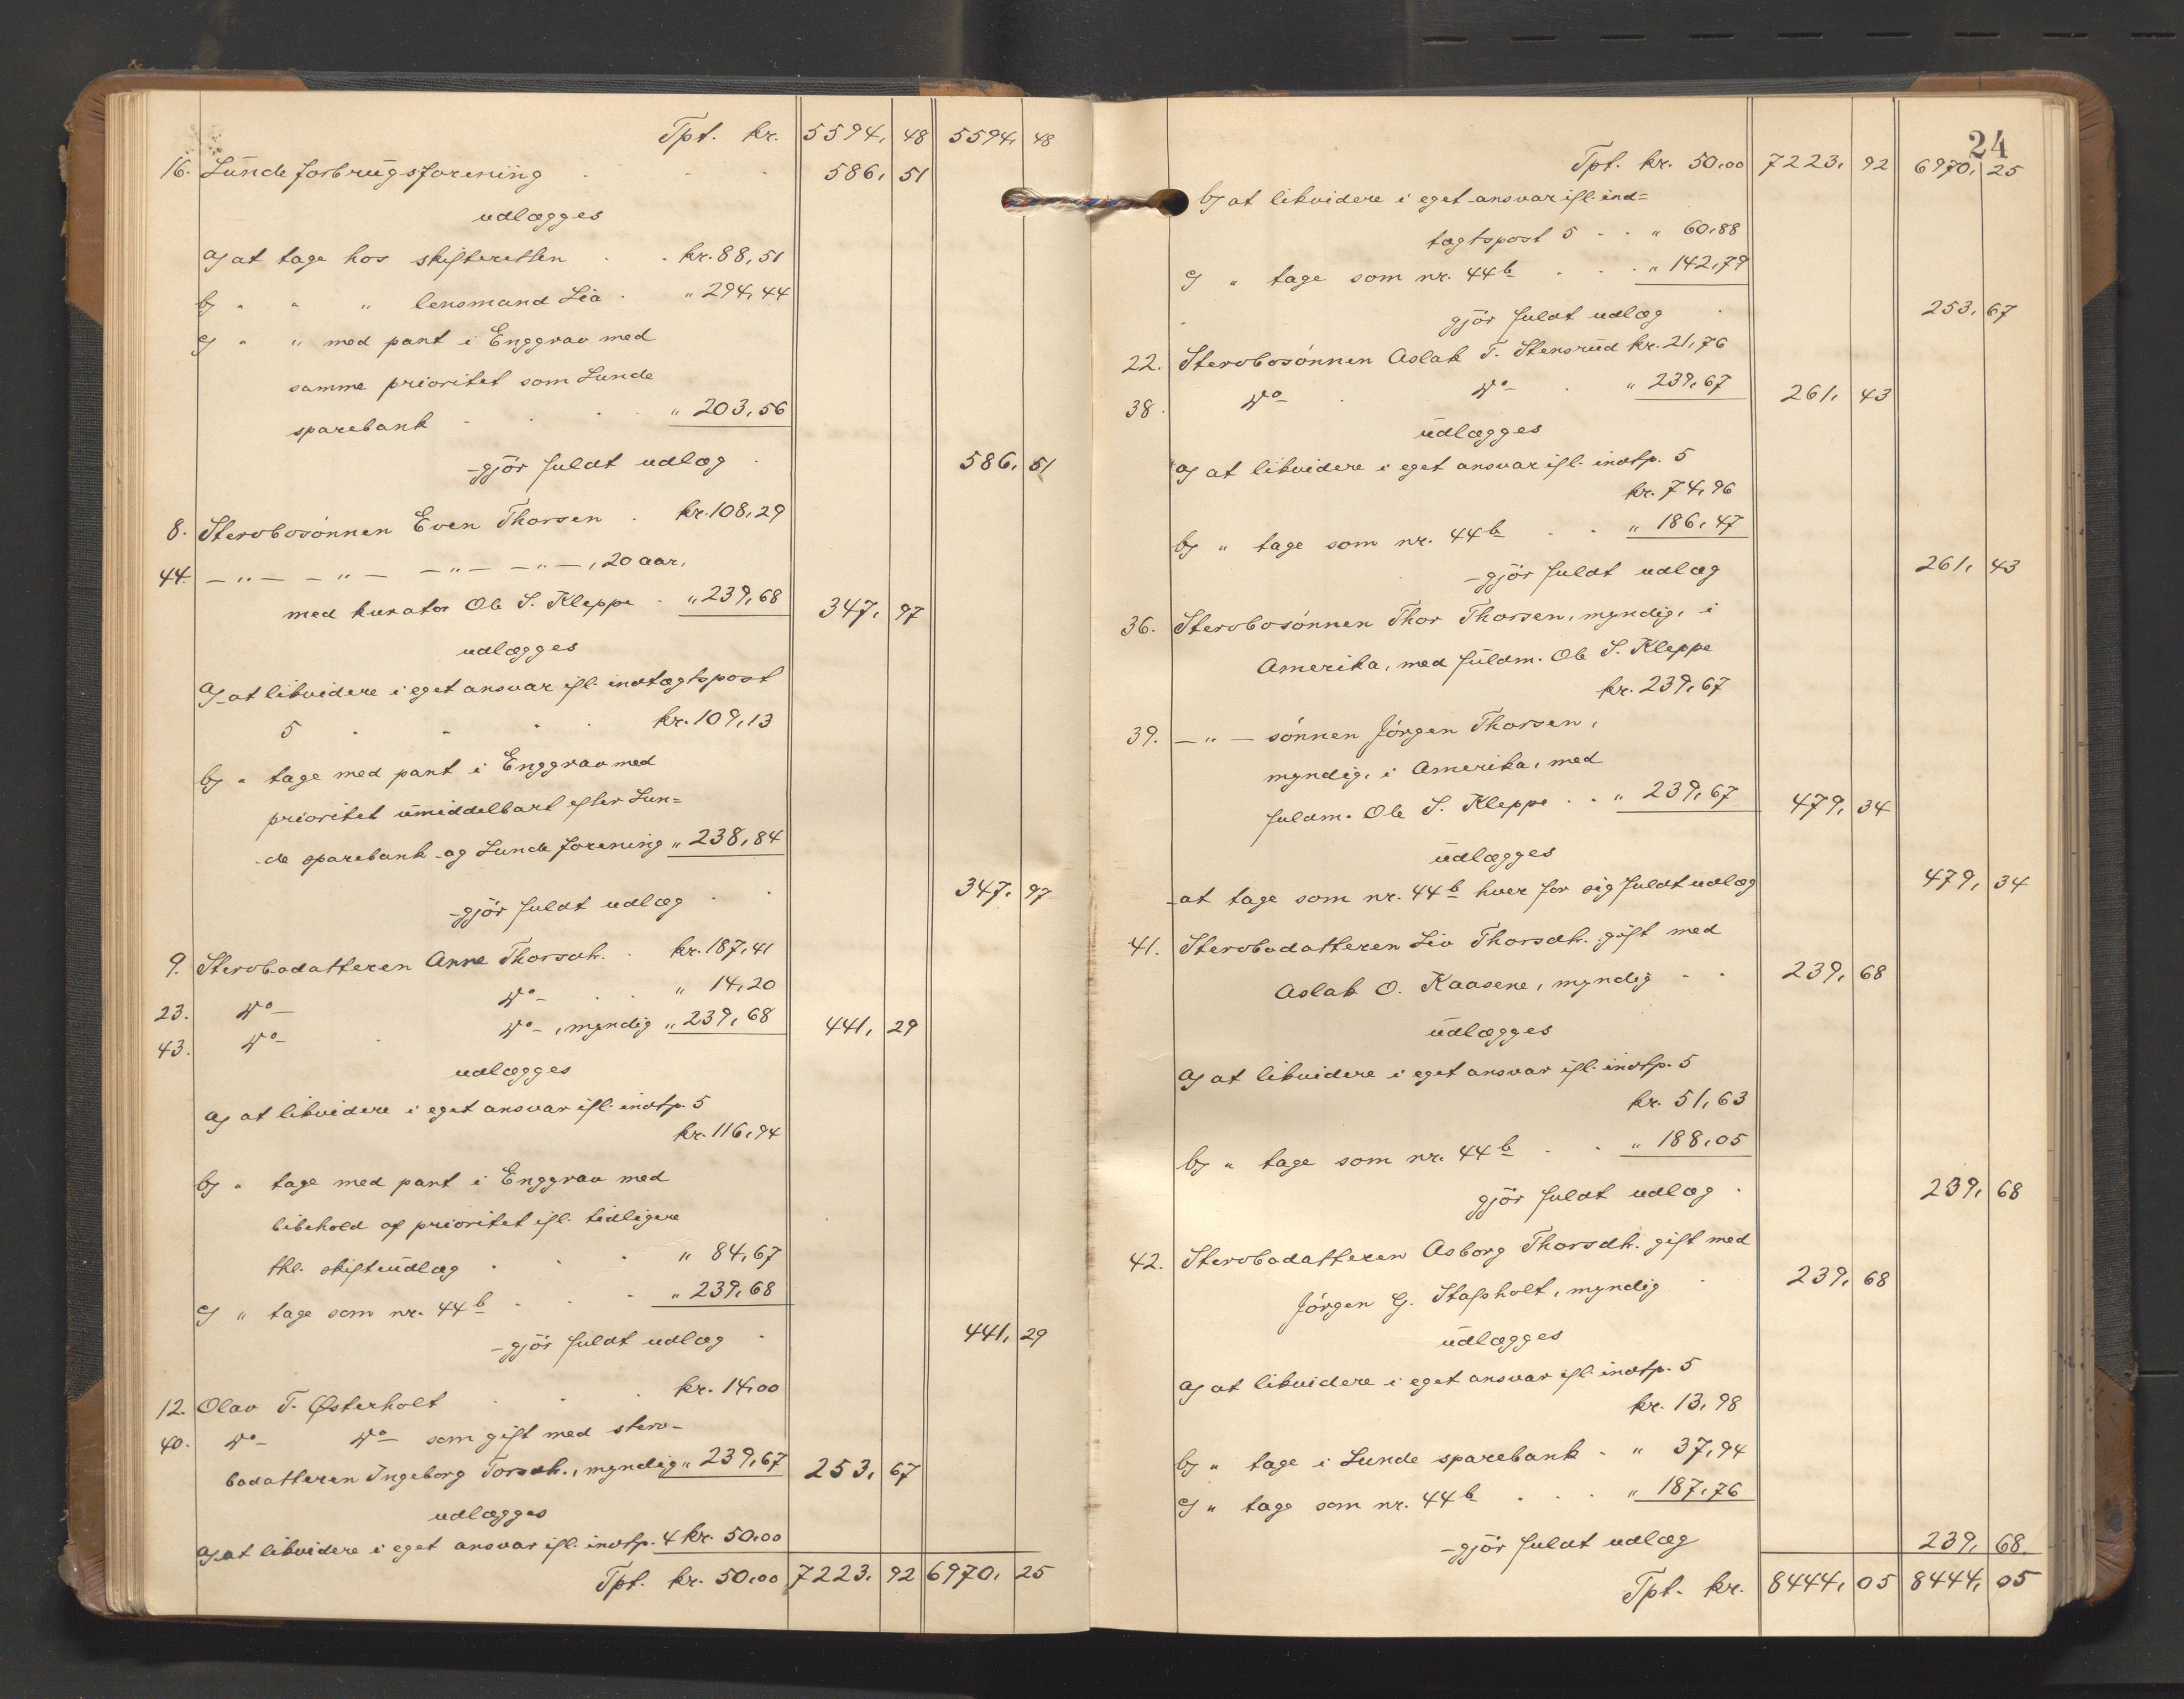 Tpt. kr. 5594, 48 5594, 48
16. Lunde forbrugsforening . . . 586, 51
udlægges
a) at tage hos skifteretten . . kr. 88,51
b) " " " lensmand Lia . " 294,44
c) " " med pant i Enggrav med
samme prioritet som Lunde
sparebank . . . " 203,56
- gjör fuldt udlæg . 586, 51
8. Stervbosönnen Even Thorsen . kr. 108,29
44. — " — — " — — " — — " —, 20 aar,
med kurator Ole S. Kleppe . " 239,68 347, 97
udlægges
a) at likvidere i eget ansvar ifl. indtægtspost
5 . . . kr. 109,13
b) " tage med pant i Enggrav med
prioritet umiddelbart efter Lun=
de sparebank og Lunde forening " 238,84
- gjör fuldt udlæg . . 347, 97
9. Stervbodatteren Anne Thorsdh. . kr. 187,41
23. Do— Do— . . " 14,20
43. Do— . Do—, myndig " 239,68 441, 29
udlægges
a) at likvidere i eget ansvar ifl. indtp. 5
kr. 116,94
b) " tage med pant i Enggrav med
bibehold af prioritet ifl. tidligere
thl. skifteudlæg . . . " 84,67
c) " tage som nr. 44 b . . . " 239,68
- gjör fuldt udlæg . 441, 29
12. Olav T. Østerholt . . kr. 14,00
40. Do— Do— som gift med sterv-
bodatteren Ingeborg Torsdh., myndig " 239,67 253, 67
udlægges
a) at likvidere i eget ansvar ifl. indtp. 4 kr. 50,00
Tpt. kr. 50,00 7223, 92 6970, 25
24
Tpt. kr. 50,00 7223, 92 6970, 25
b) at likvidere i eget ansvar ifl. ind=
tægtspost 5 . . " 60,88
c) " tage som nr. 44 b . . . " 142,79
gjör fuldt udlæg . 253, 67
22. Stervbosönnen Aslak T. Stensrud kr. 21,76
38. Do— . Do— . " 239,67 261, 43
udlægges
a) at likvidere i eget ansvar ifl. indtp. 5
kr. 74,96
b) " tage som nr. 44 b . . " 186,47
- gjör fuldt udlæg 261, 43
36. Stervbosönnen Thor Thorsen, myndig, i
Amerika, med fuldm. Ole S. Kleppe
kr. 239,67
39. — " — sönnen Jörgen Thorsen,
myndig, i Amerika, med
fuldm. Ole S. Kleppe . . " 239,67 479, 34
udlægges
at tage som nr. 44 b hver for sig fuldt udlæg 479, 34
41. Stervbodatteren Liv Thorsdh. gift med
Aslak O. Kaasene, myndig . . 239, 68
udlægges
a) at likvidere i eget ansvar ifl. indtp. 5
kr. 51,63
b) " tage som nr. 44 b . . " 188,05
gjör fuldt udlæg . 239, 68
42. Stervbodatteren Asborg Thorsdh. gift med
Jörgen G. Stafsholt, myndig . 239, 68
udlægges
a) at likvidere i eget ansvar ifl. indtp. 5
kr. 13,98
b) " tage i Lunde sparebank . " 37,94
c) " tage som nr. 44 b . . . " 187,76
- gjör fuldt udlæg 239, 68
Tpt. kr. 8444, 05 8444, 05